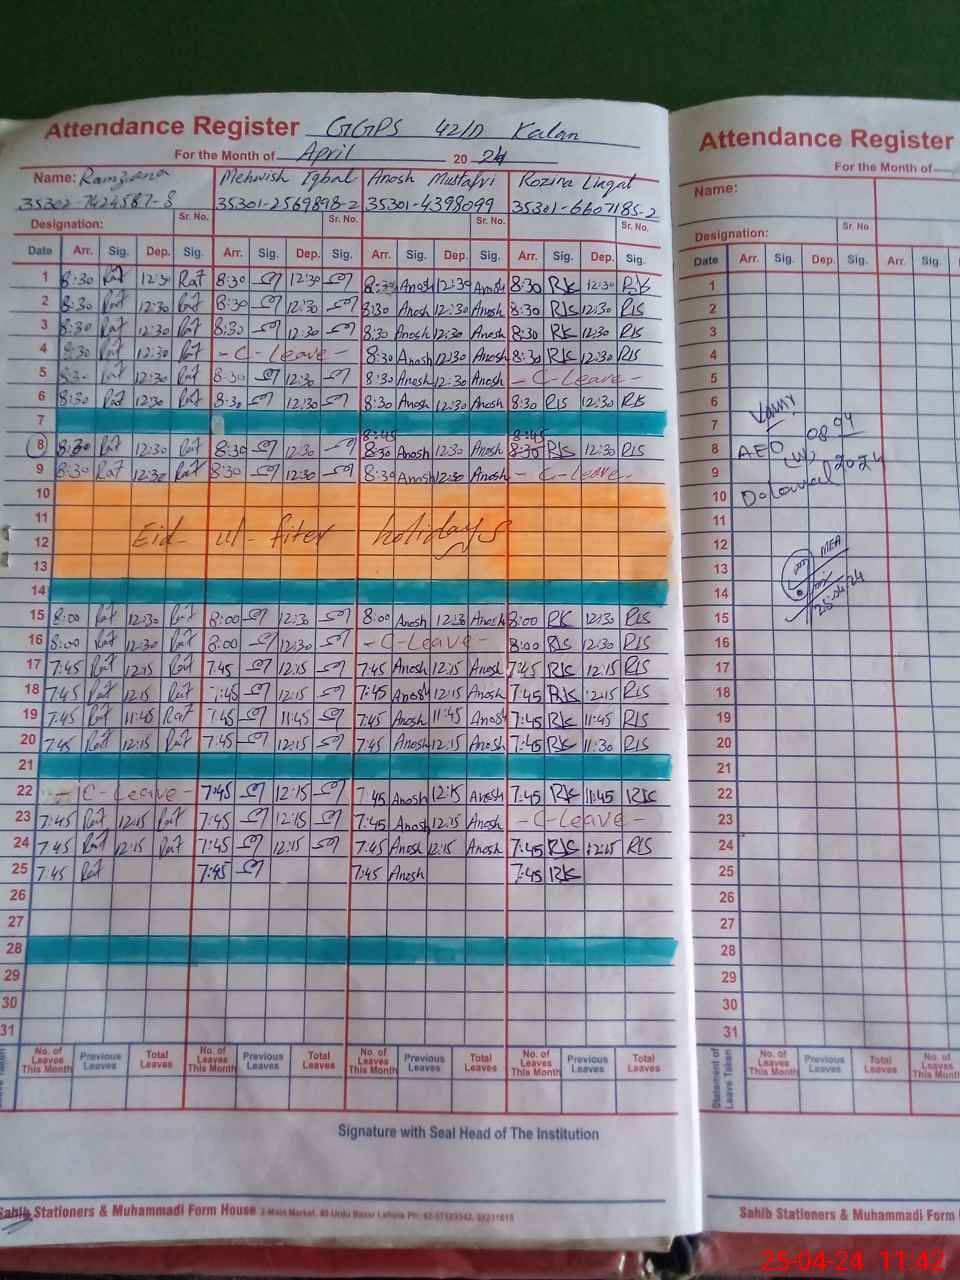 Attendance Register GGPS 42/D Kalan
For the Month of April 20 24
Name: Ramzana Mehwish Iqbal Anosh Mustafvi Rozina Liaqat
35302-7424587-8 35301-2569898-2 35301-4398099 35301-6607185-2
Sr. No. Sr. No. Sr. No. Sr. No.
Designation:
Date Arr. Sig. Dep. Sig. Arr. Sig. Dep. Sig. Arr. Sig. Dep. Sig. Arr. Sig. Dep. Sig.
1 8:30 Raf 12:30 Raf 8:30 12:30 8:30 Anosh 12:30 Anosh 8:30 RIS 12:30 RIS
2 8:30 Raf 12:30 Raf 8:30 12:30 8:30 Anosh 12:30 Anosh 8:30 RIS 12:30 RIS
3 8:30 Raf 12:30 Raf 8:30 12:30 8:30 Anosh 12:30 Anosh 8:30 RIS 12:30 RIS
4 8:30 Raf 12:30 Raf - C - Leave - 8:30 Anosh 12:30 Anosh 8:30 RIS 12:30 RIS
5 8:30 Raf 12:30 Raf 8:30 12:30 8:30 Anosh 12:30 Anosh - C - Leave -
6 8:30 Raf 12:30 Raf 8:30 12:30 8:30 Anosh 12:30 Anosh 8:30 RIS 12:30 RIS
7
8:45 8:45
8 8:30 Raf 12:30 Raf 8:30 12:30 8:30 Anosh 12:30 Anosh 8:30 RIS 12:30 RIS
9 8:30 Raf 12:30 Raf 8:30 12:30 8:30 Anosh 12:30 Anosh - C - Leave -
10
11
12 Eid - ul - fiter holidays
13
14
15 8:00 Raf 12:30 Raf 8:00 12:30 8:00 Anosh 12:30 Anosh 8:00 RIS 12:30 RIS
16 8:00 Raf 12:30 Raf 8:00 12:30 - C - Leave - 8:00 RIS 12:30 RIS
17 7:45 Raf 12:15 Raf 7:45 12:15 7:45 Anosh 12:15 Anosh 7:45 RIS 12:15 RIS
18 7:45 Raf 12:15 Raf 7:45 12:15 7:45 Anosh 12:15 Anosh 7:45 RIS 12:15 RIS
19 7:45 Raf 11:45 Raf 7:45 11:45 7:45 Anosh 11:45 Anosh 7:45 RIS 11:45 RIS
20 7:45 Raf 12:15 Raf 7:45 12:15 7:45 Anosh 12:15 Anosh 7:45 RIS 11:30 RIS
21
22 - C - Leave - 7:45 12:15 7:45 Anosh 12:15 Anosh 7:45 RIS 11:45 RIS
23 7:45 Raf 12:15 Raf 7:45 12:15 7:45 Anosh 12:15 Anosh - C - Leave -
24 7:45 Raf 12:15 Raf 7:45 12:15 7:45 Anosh 12:15 Anosh 7:45 RIS 12:15 RIS
25 7:45 Raf 7:45 7:45 Anosh 7:45 RIS
26
27
28
29
30
31
No. of Leaves This Month Previous Leaves Total Leaves No. of Leaves This Month Previous Leaves Total Leaves No. of Leaves This Month Previous Leaves Total Leaves No. of Leaves This Month Previous Leaves Total Leaves
Signature with Seal Head of The Institution
Sahib Stationers & Muhammadi Form House
Attendance Register
For the Month of
Name:
Sr. No.
Designation:
Date Arr. Sig. Dep. Sig. Arr.
1
2
3
4
5
6
7
8 AEO 08 04
9 2024
10
11
12 MEA
13
14 25-04-24
15
16
17
18
19
20
21
22
23
24
25
26
27
28
29
30
31
Statement of Leave Taken No. of Leaves This Month Previous Leaves Total Leaves No. of Leaves This Month
Sahib Stationers & Muhammadi Form
25-04-24 11:42